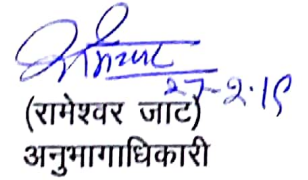 27-2-19
(रामेश्वर जाट)
अनुभागाधिकारी